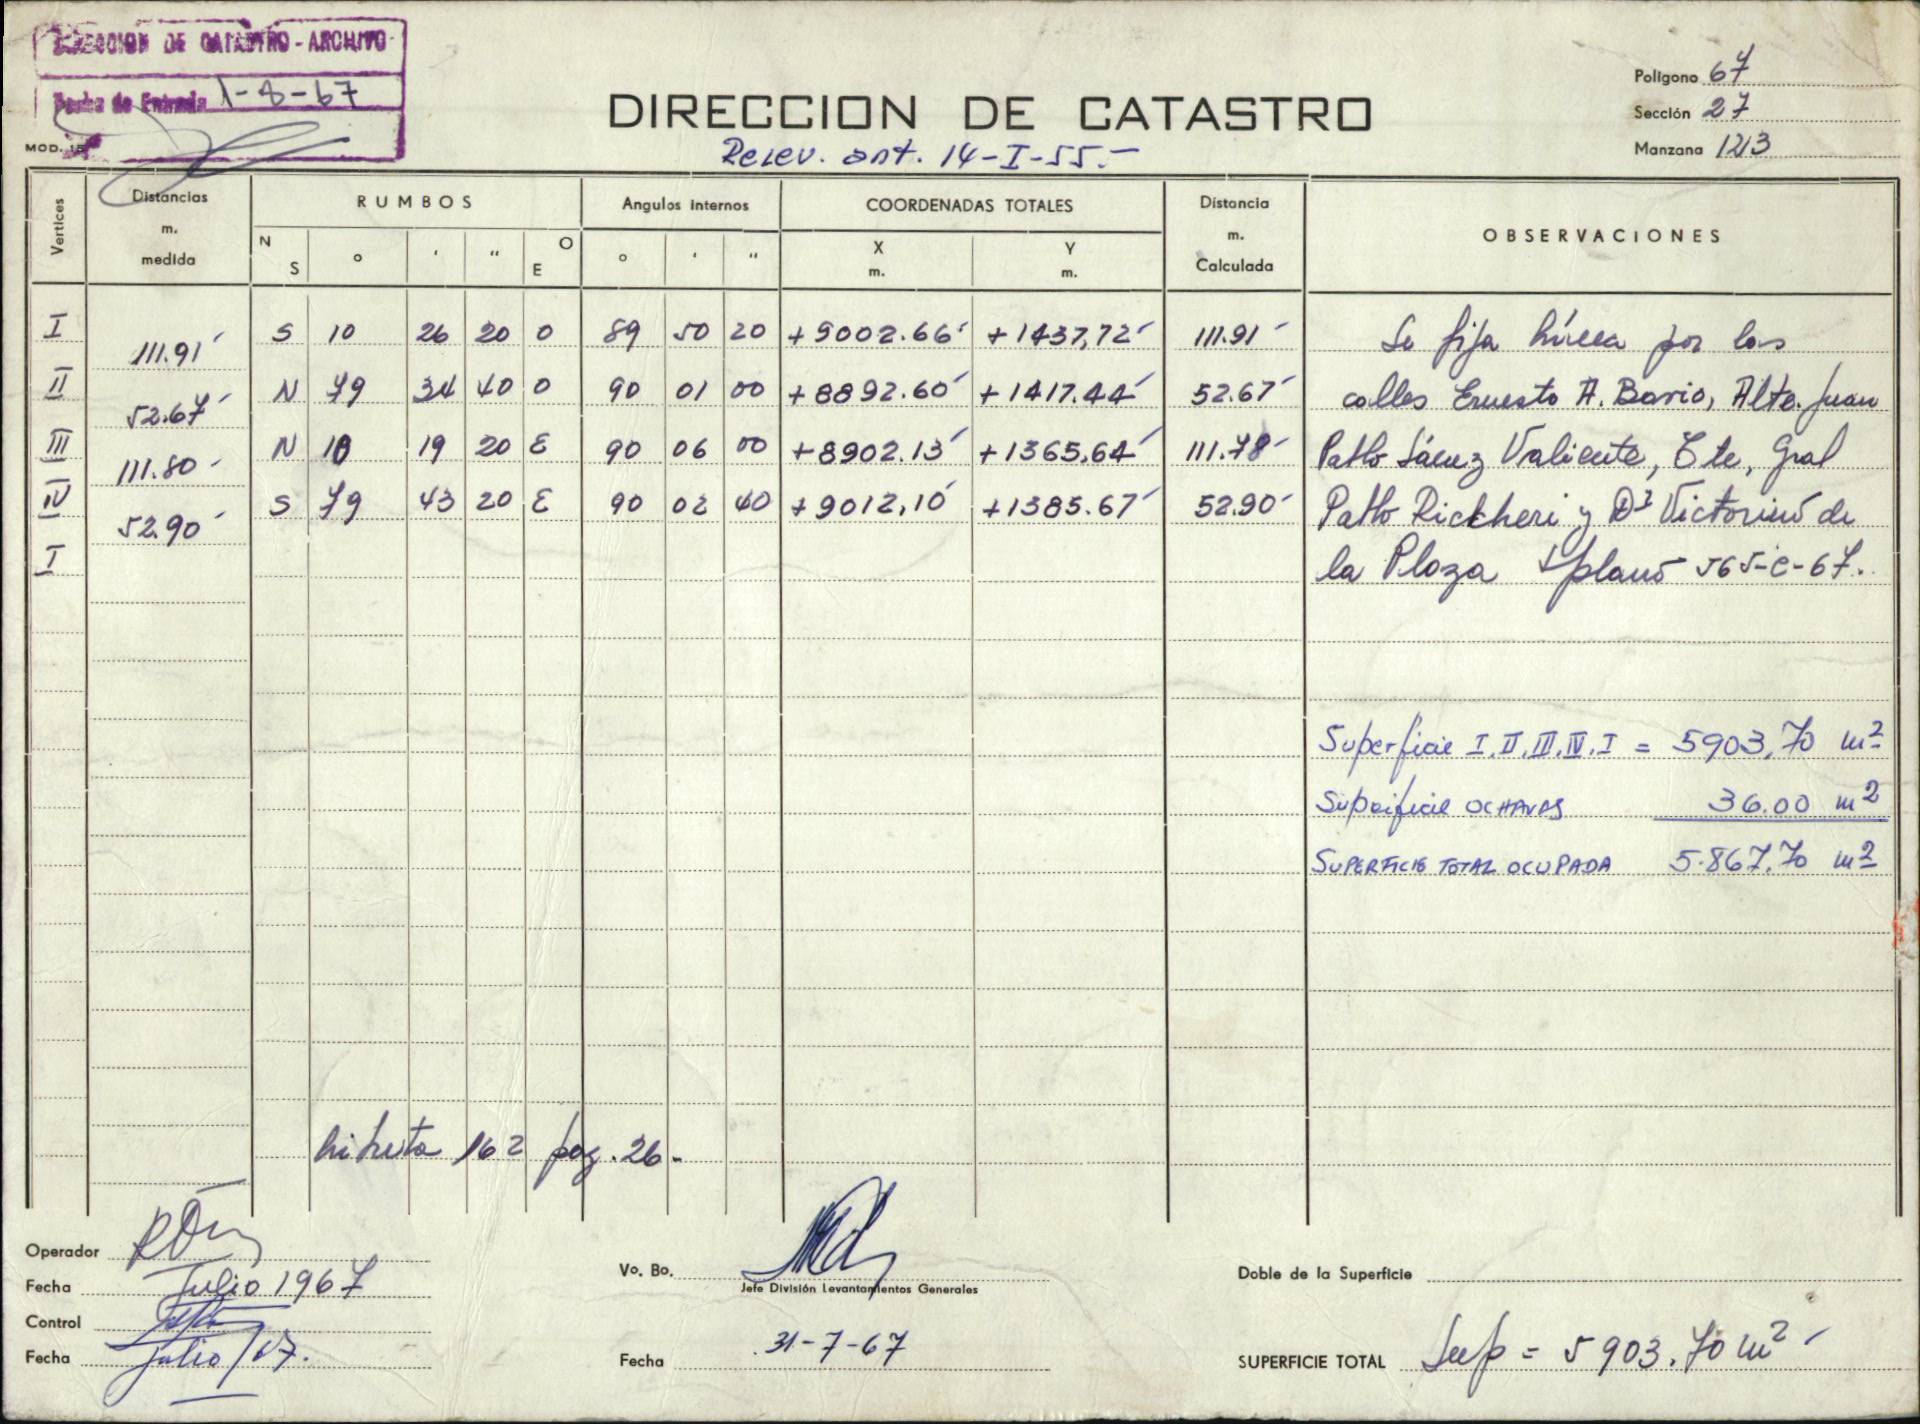 DIRECCION DE CATASTRO - ARCHIVO
Fecha de Entrada 1-8-67
MOD. 15
DIRECCION DE CATASTRO
Relev. ant. 14-I-55.-
Polígono 67
Sección 27
Manzana 123
Vertices
Distancias m. medida
RUMBOS
N S ° ' " O E
Angulos internos
° ' "
COORDENADAS TOTALES
X m. Y m.
Distancia m. Calculada
OBSERVACIONES
I S 10 26 20 O 89 50 20 +9002.66 +1437,72 111.91
111.91
II N 79 34 40 O 90 01 00 +8892.60 +1417.44 52.67
52.67
III N 10 19 20 E 90 06 00 +8902.13 +1365,64 111.78
111.80
IV S 79 43 20 E 90 02 40 +9012,10 +1385.67 52.90
52.90
I
Se fija línea por las
calles Ernesto A. Bavio, Alte. Juan
Pablo Sáenz Valiente, Tte, Gral
Pablo Riccheri y Dr Victorino de
la Plaza s/plano 565-C-67.
Superficie I.II.III.IV.I = 5903,70 m²
Superficie OCHAVAS 36.00 m²
SUPERFICIE TOTAL OCUPADA 5.867,70 m²
libreta 162 pag. 26-
Operador
Fecha Julio 1967
Control
Fecha Julio/67.
Vo. Bo.
Jefe División Levantamientos Generales
Fecha 31-7-67
Doble de la Superficie
SUPERFICIE TOTAL Sup = 5903,70 m²